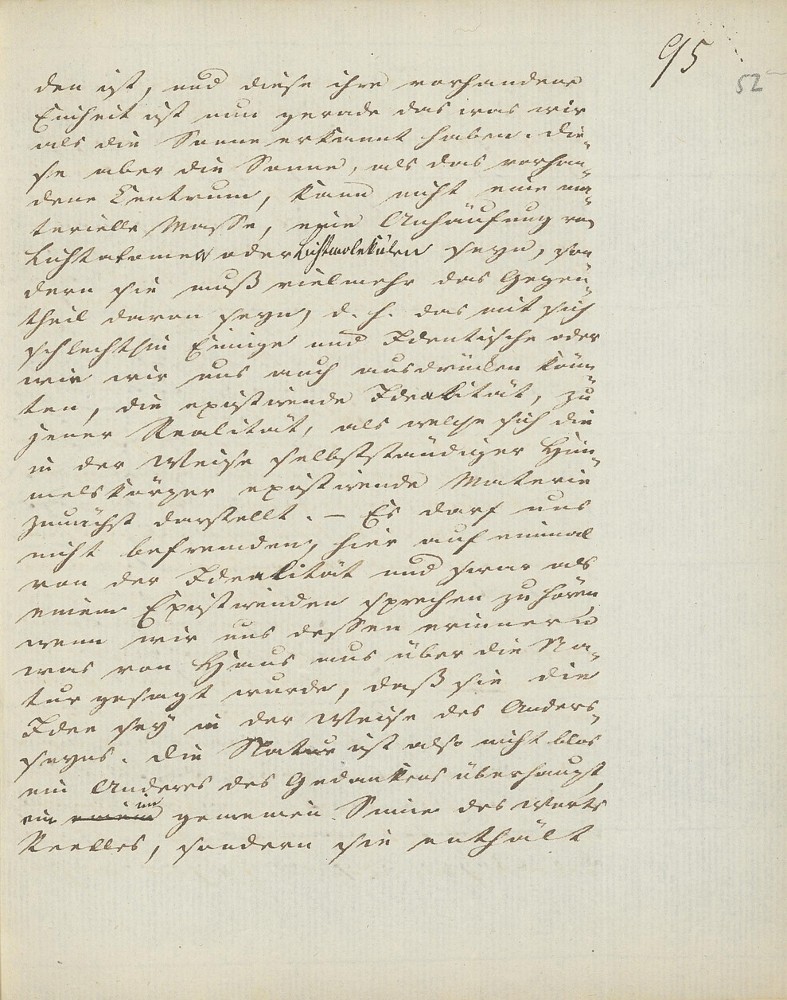 95
52
den ist, und diese ihre vorhandene
Einheit ist nun gerade das was wir
als die Sonne erkannt haben. Die-
se aber die Sonne, als das vorhan-
dene Centrum, kann nicht eine ma-
terielle Masse, eine Anhäufung von
Lichtatomen oder Lichtmolekülen seyn, son
dern sie muß vielmehr das Gegen-
theil davon seyn, d. h. das mit sich
schlechthin Einige und Identische oder
wie wir uns auch ausdrücken könn
ten, die existirende Idealität, zu
jener Realität, als welche sich die
in der Weise selbstständiger Him-
melskörper existirende Materie
zunächst darstellt. – Es darf uns
nicht befremden, hier auf einmal
von der Idealität und zwar als
einem Existirenden sprechen zu hören,
wenn wir uns dessen erinnern
was von Haus aus über die Na-
tur gesagt wurde, daß sie die
Idee sey in der Weise des Anders-
seyns. Die Natur ist also nicht blos
ein Anderes des Gedankens überhaupt,
ein im gemeinen Sinne des Worts
Reelles, sondern sie enthält